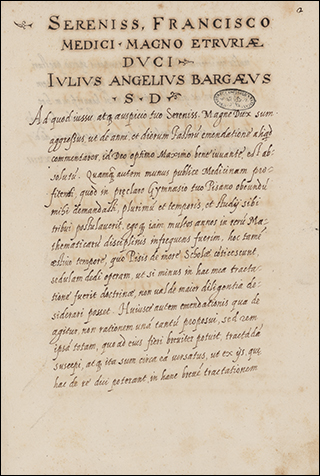 SERENISS. FRANCISCO
MEDICI · MAGNO ETRVRIÆ
DVCI
IVLIVS ANGELIVS BARGÆVS
· S · D ·
Ad quod iussu atq auspicio tuo Sereniss. Magne Dux sum
aggressus ut de anni, et dierum Paschalium emendatione aliqd
commentarer, id Deo optimo Maximo bene iuuante, est ab
solutũ. Quamq autem munus publice Medicinam pro
fitendi, quod in præclaro Gymnasio tuo Pisano obeundũ
mihi demandasti, plurimũ et temporis, et studij sibi
tribui postulauerit, egoq iam multos annos in rerũ Ma
thematicarũ disciplinis infrequens fuerim, hoc tamẽ
æstiuo tempore, quo Pisis de more Scholæ conticescunt,
sedulam dedi operam, ut si minus in hac mea tracta
tione fuerit doctrinæ, non ualde maior diligentia de
siderari posset. Huiusce autem emendationis qua de
agitur, non rationem unã tantũ proposui, sed rem
ipsã totam, quoad eius fieri breuiter potuit, tractãdã
suscepi, atq ita sum circa eã uersatus, ut ex ijs, quæ
hac de re dici poterant, in hanc breuẽ tractationem